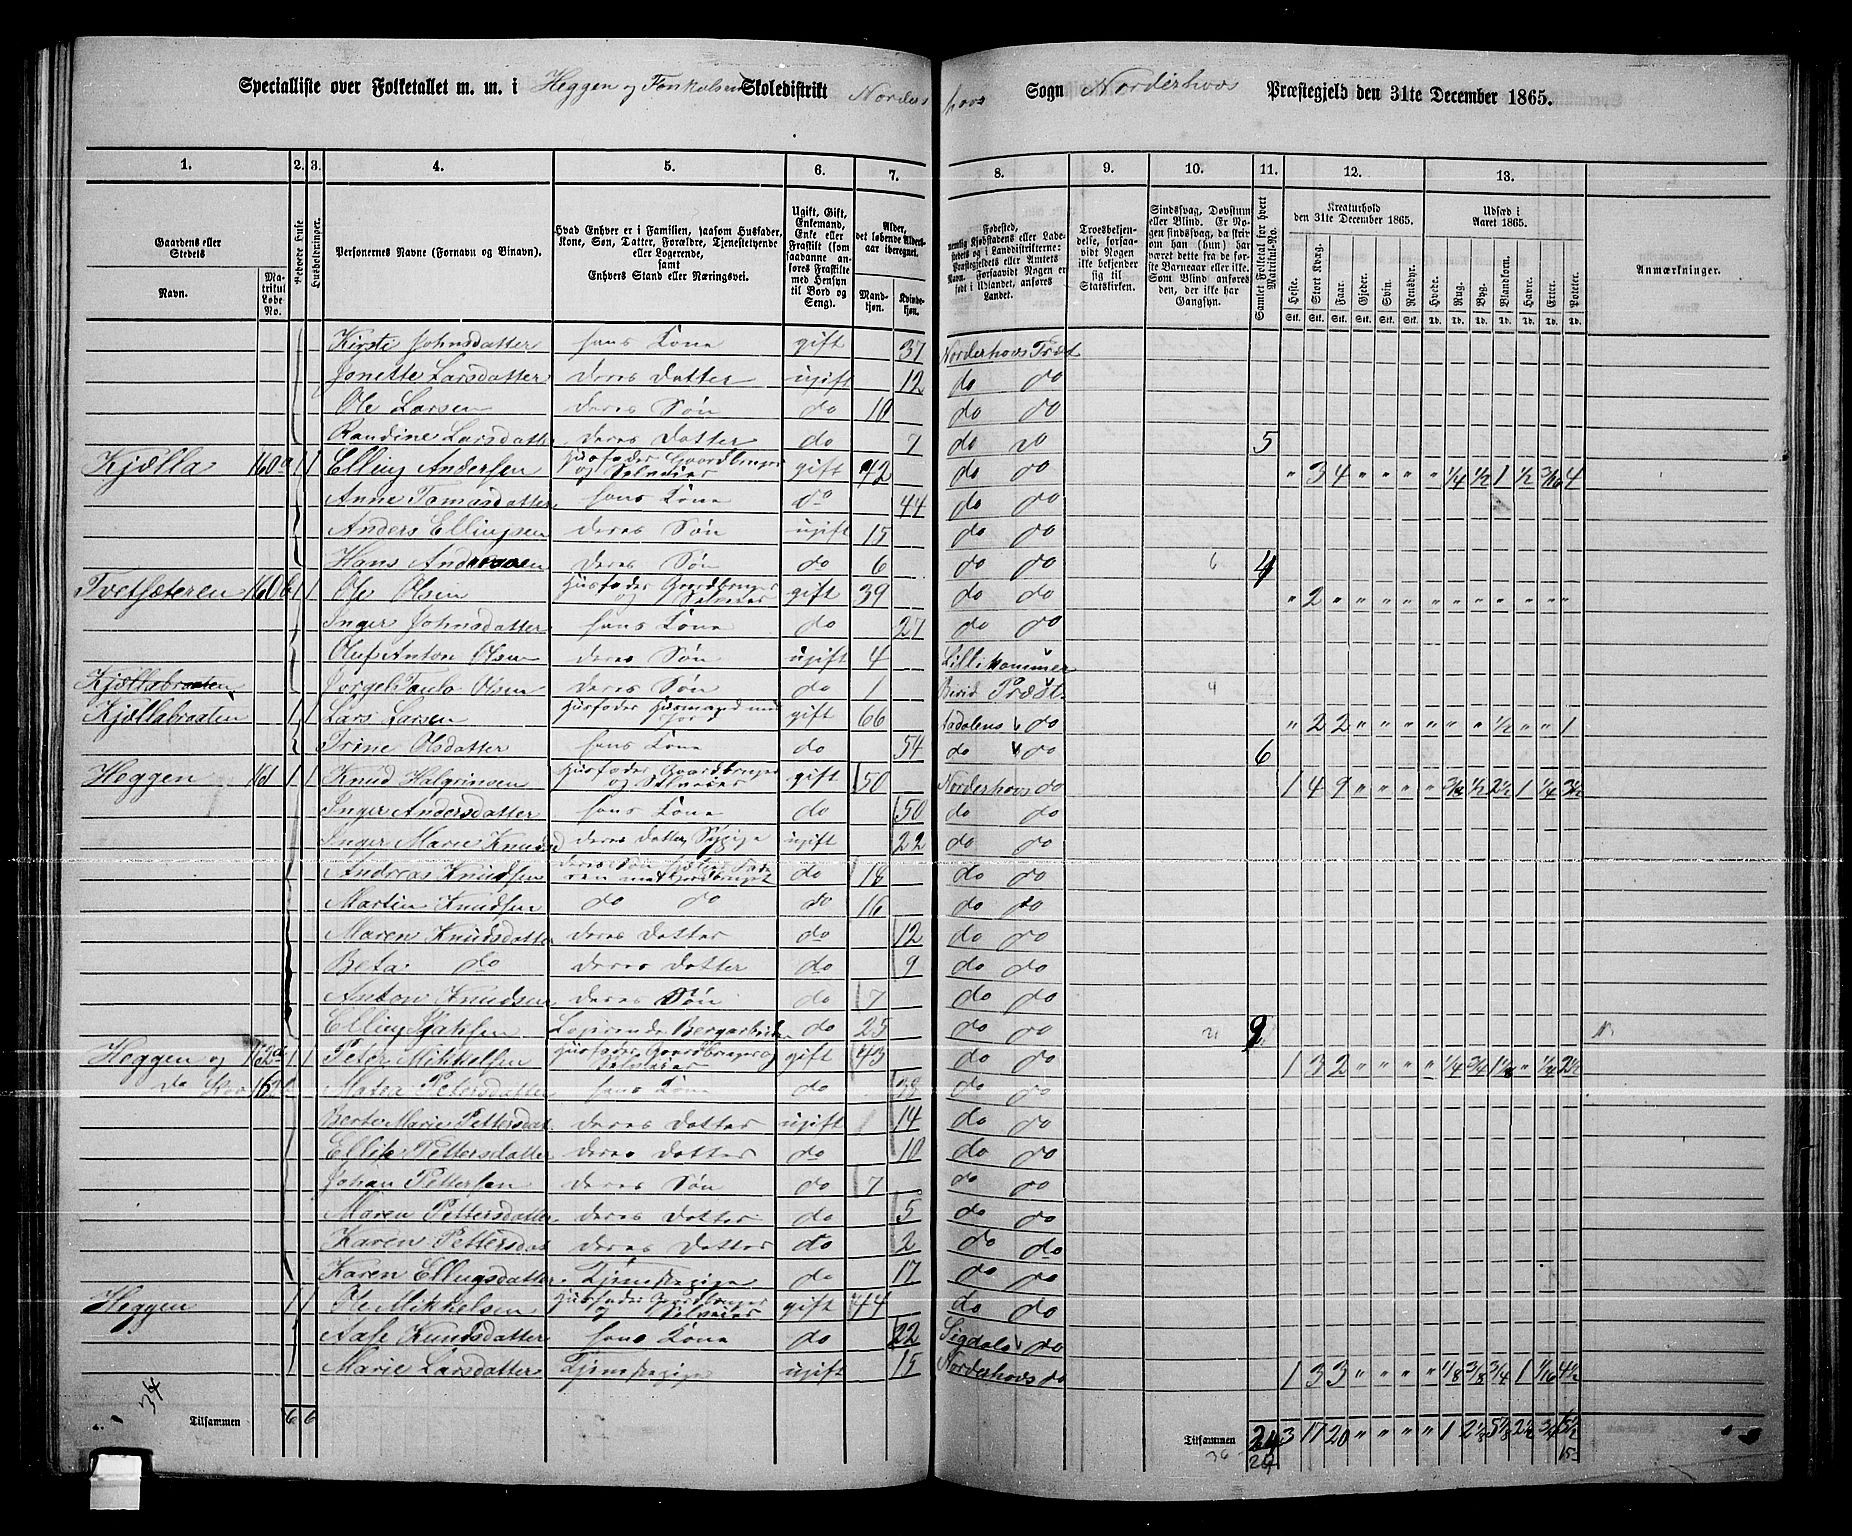 Specialliste over Folketallet m. m. i Heggen og Skoledistrikt Norderhovs Sogn Norderhovs Præstegjeld den 31te December 1865.
1. 2. 3. 4. 5. 6. 7. 8. 9. 10. 11. 12. 13.
Gaardens eller Stedets Navn. Matrikul Løbe No. Beboede Huse Husholdninger. Personernes Navne (Fornavn og Binavn). Hvad Enhver er i Familien, saasom Husfader, Kone, Søn, Datter, Forældre, Tjenestetyende eller Logerende, samt Enhvers Stand eller Næringsvei. Ugift, Gift, Enkemand, Enke eller Fraskilt (som saadanne anføres Fraskilte med Hensyn til Bord og Seng). Alder, det løbende Aldersaar iberegnet. Mandkjøn. Kvindekjøn.
Troesbekjendelse, forsaavidt Nogen ikke bekjender sig til Statskirken. Sindssvag, Døvstum eller Blind. Samlet Folketal for hvert Matrikul-No. Kreaturhold den 31te December 1865. Udsæd i Aaret 1865. Anmærkninger.
Heste. Stort Kvæg. Faar. Gjeder. Svin. Rensdyr. Hvede. Rug. Byg. Blandkorn. Havre. Erter. Poteter.
Kirsti Johnsdatter hans Kone gift 37 Norderhovs Præst
Jonette Larsdatter deres Datter ugift 12 do do
Ole Larsen deres Søn do 10 do do
Randine Larsdatt deres Datter do 7 do do 5
Kjølla 160a 1 1 Elling Andersen Husfader Gaardbruger og Selveier gift 42 do do " 3 4 " " " " 1/4 1/2 1 1/2 3/16 4
Anne Tomasdatter hans Kone do 44 do do
Anders Ellingsen deres Søn ugift 15 do do
Hans Andersen deres Søn do 6 do do 6 4
Tvetsæteren 160b 1 1 Ole Olsen Husfader Gaardbruger og Selveier gift 39 do do " 2 " " " " " " " " " " "
Inger Johnsdatter hans Kone do 27 do do
Oluf Anton Olsen deres Søn ugift 4 Lillehammer
Kjøllabraaten Olsen deres Søn do 1 Birid Præst. 4
Kjøllabraaten 1 1 Lars Larsen Husfader Husmand med Jord gift 66 Aadalens do " 2 2 " " " " " " 1/2 " " 1
Trine Olsdatter hans Kone do 54 do do 6
Heggen 161 1 1 Knud Halgrimsen Husfader Gaardbruger og Selveier gift 50 Norderhovs do 1 4 9 " " " " 3/8 1/2 2 1/2 1 1/4 3 1/2
Inger Andersdatter hans Kone do 50 do do
Inger Marie Knuds deres Datter ugift 22 do do
Andreas Knudsen deres Søn do 18 do do
Martin Knudsen do do do 16 do do
Maren Knudsdatter deres Datter do 12 do do
Beta do deres Datter do 9 do do
Anton Knudsen deres Søn do 7 do do
Elling Logerende Bergarbeider do 25 do do 9
Heggen og 162a 1 1 Peter Mikkelsen Husfader Gaardbruger og Selveier gift 43 do do 1 3 2 " " " " 1/4 3/4 1 1/8 " 1/4 2 1/2
do 162b Petersdatter hans Kone do 38 do do
Berte Marie Pettersdat deres Datter ugift 14 do do
Pettersdatter deres Datter do 10 do do
Johan Pettersen deres Søn do 7 do do
Maren Pettersdatter deres Datter do 5 do do
Karen Pettersdat deres Datter do 2 do do
Karen Ellingsdatter Tjenestepige do 17 do do
Heggen 1 1 Ole Mikkelsen Husfader Gaardbruger og Selveier gift 44 do do
Aase Knudsdatter hans Kone do 22 Sigdals do
Marie Larsdatter Tjenestepige ugift 15 Norderhovs do 1 3 3 " " " " 1/8 3/8 3/4 1 1/16 4 1/2
34
Tilsammen 6 6 Tilsammen 24 3 17 20 " " " " 1 2 1/8 5 3/8 2 1/2 3/4 15 1/2
36 24